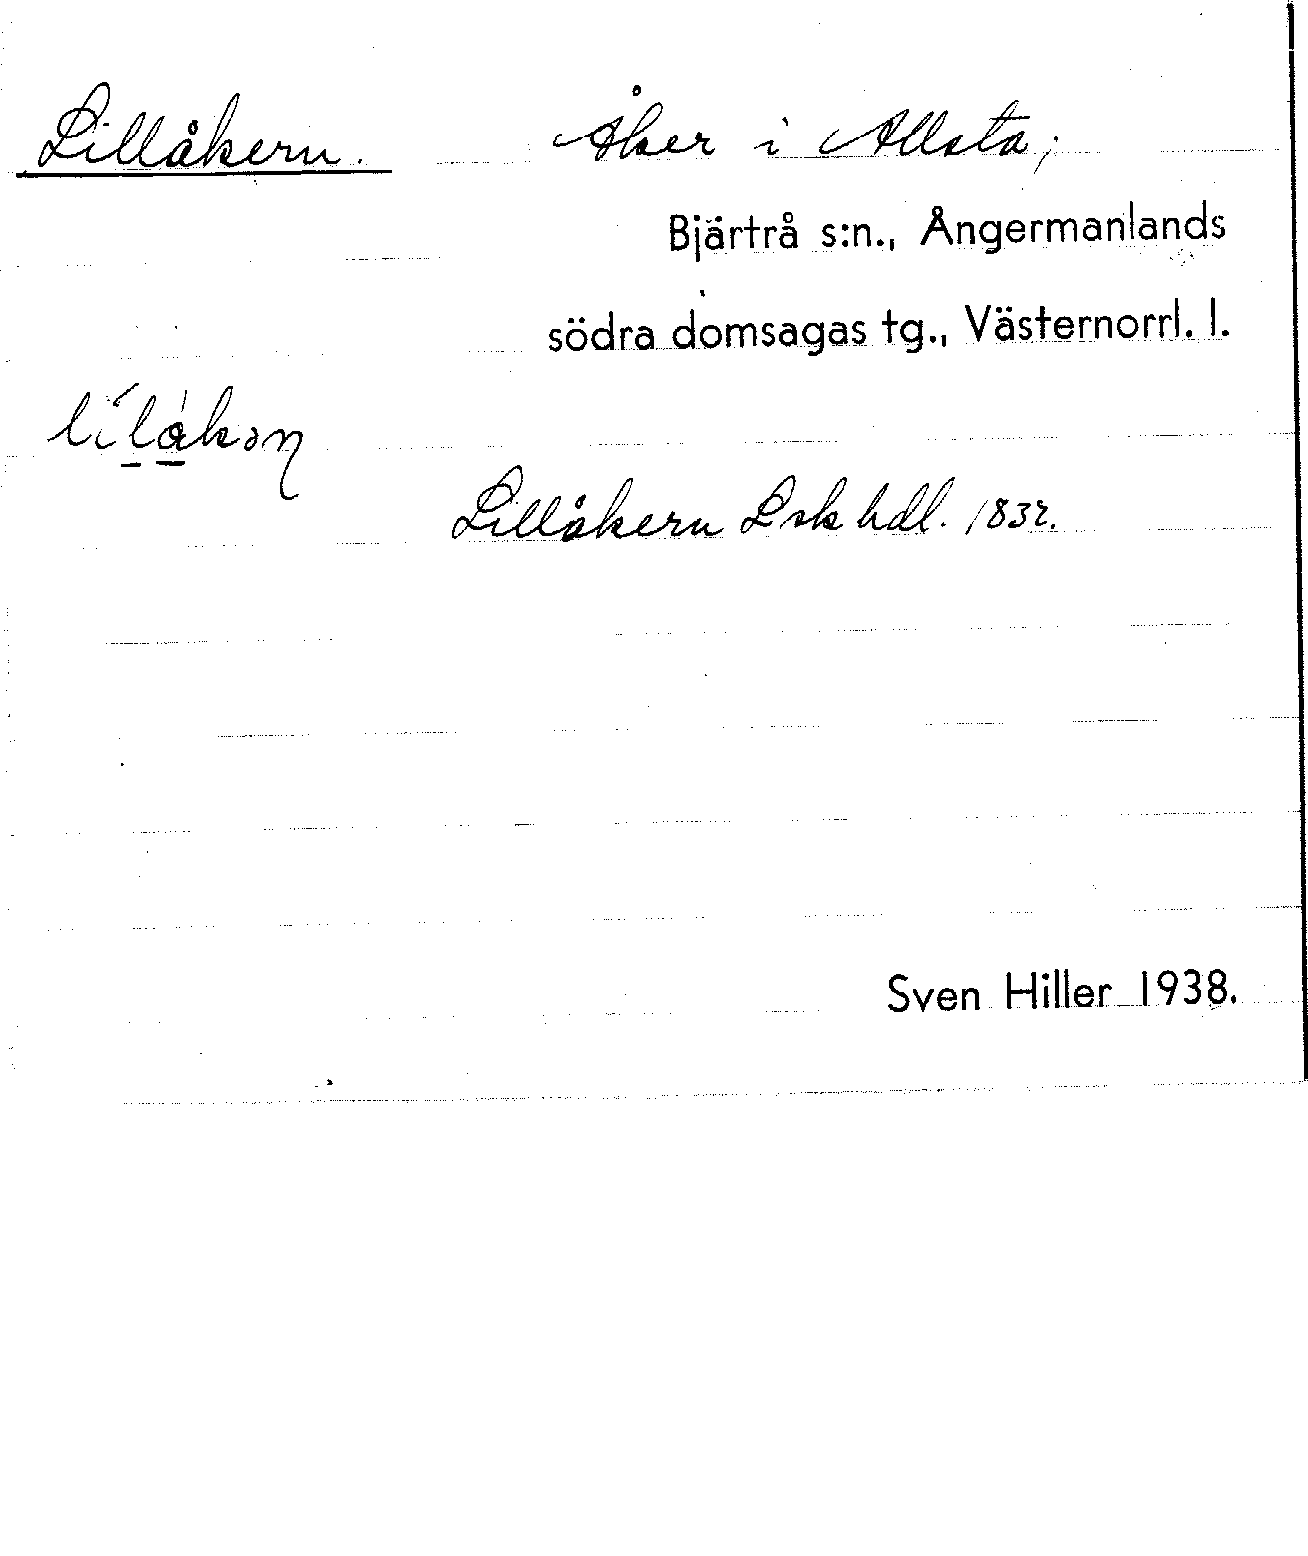 Lillåkern. Åker i Allsta,
Bjärtrå s:n., Ångermanlands
södra domsagas tg., Västernorrl. l.
Lillåkern Lsk hdl. 1832.
Sven Hiller 1938.